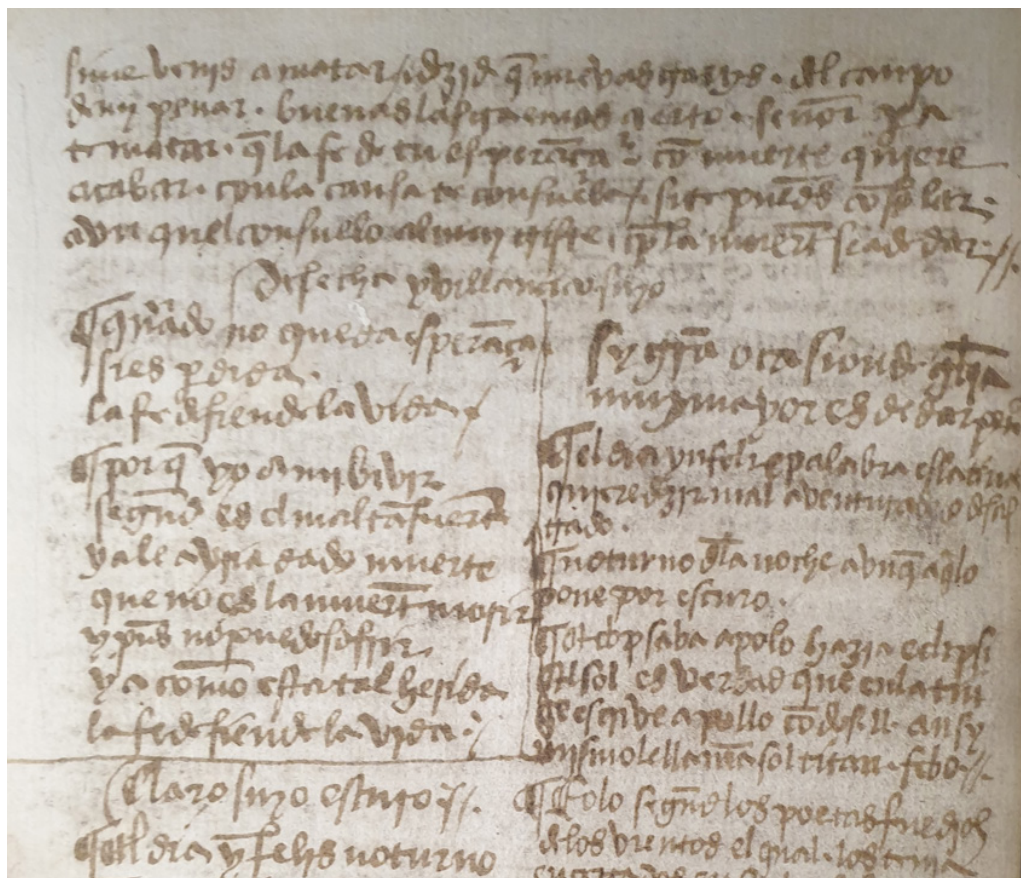 si me venis a matar / dezid q̃ nuevas traeys · del campo
de mi penar · buenas las traemos çierto · señor
te matar · q̃ la fe de tu esperãça · cõ muerte quiere
acabar · con la causa te consuela / si te puedes cõsolar
aun quel consuelo al muy triste · cõ la muerte se a de dar //
desfecha y villancico suyo
quãdo no queda esperãça
si es perdida ·
la fe defiende la vida /
por q̃ yo a mi bivir
segũd es el mal tã fuerte
ya le avria dado muerte
que no es la muerte morir
y pues no puedo sofrir
ya como esta tal herida
la fe defiende la vida ·
Claro suyo escuro //
El dia ynfelis noturno
sy grã ocasion de
muy mayor es de dar
el dia ynfelix palabra es latina
quiere dezir mal aventurado o
noturno de la noche aunq̃ aqlo
pone por escuro ·
apolo hazia eclipsi
el sol es verdad que en la
se escrive apollo cõ dos ll · ansy
mismo le llamã sol titan · febo //
Eolo segũd los poetas fue dios
de los vientos el qual · los tenia